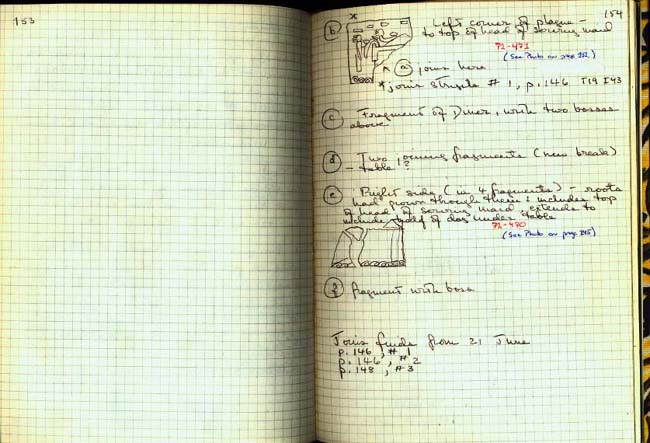 153
154
(b) Left corner of plaque –
to top of head of serving maid
72-471
(See Photo on page 152)
(a) joins here
*joins #1, p.146 T19 I43
(c) Fragment of Diner, with two bosses
above
(d) Two joining fragments (new break)
– table?
(e) Right side (in 4 fragments) – roots
had grown through them & includes top
of head of serving maid, extends to
include half of dog under table
72-470
(See Photo on page 145)
(f) fragment with boss
Joins finds from 21 June
p. 146, #1
p. 146, #2
p. 148, #3